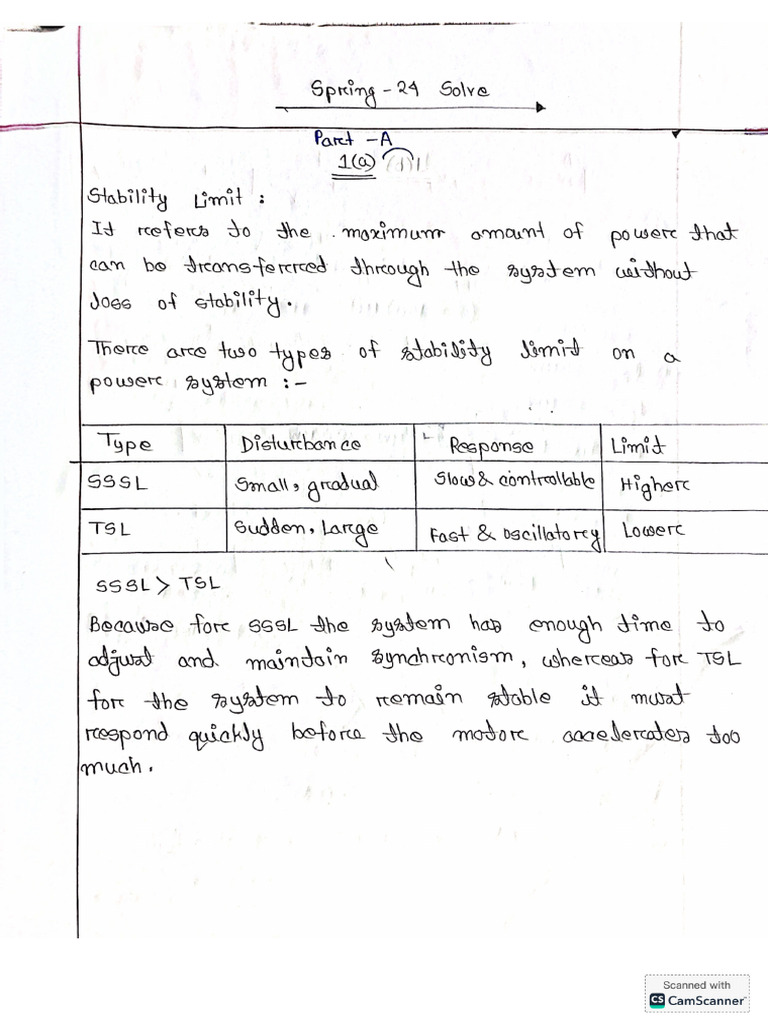 Spring - 24 Solve
Part - A
1(a)
Stability Limit :
It refers to the maximum amount of power that
can be transferred through the system without
loss of stability.
There are two types of stability limit on a
power system :-
Type Disturbance Response Limit
SSSL Small, gradual Slow & controllable Higher
TSL Sudden, Large Fast & Oscillatory Lower
SSSL > TSL
Because for SSSL the system has enough time to
adjust and maintain synchronism, whereas for TSL
for the system to remain stable it must
respond quickly before the motor accelerates too
much.
Scanned with
CS CamScanner